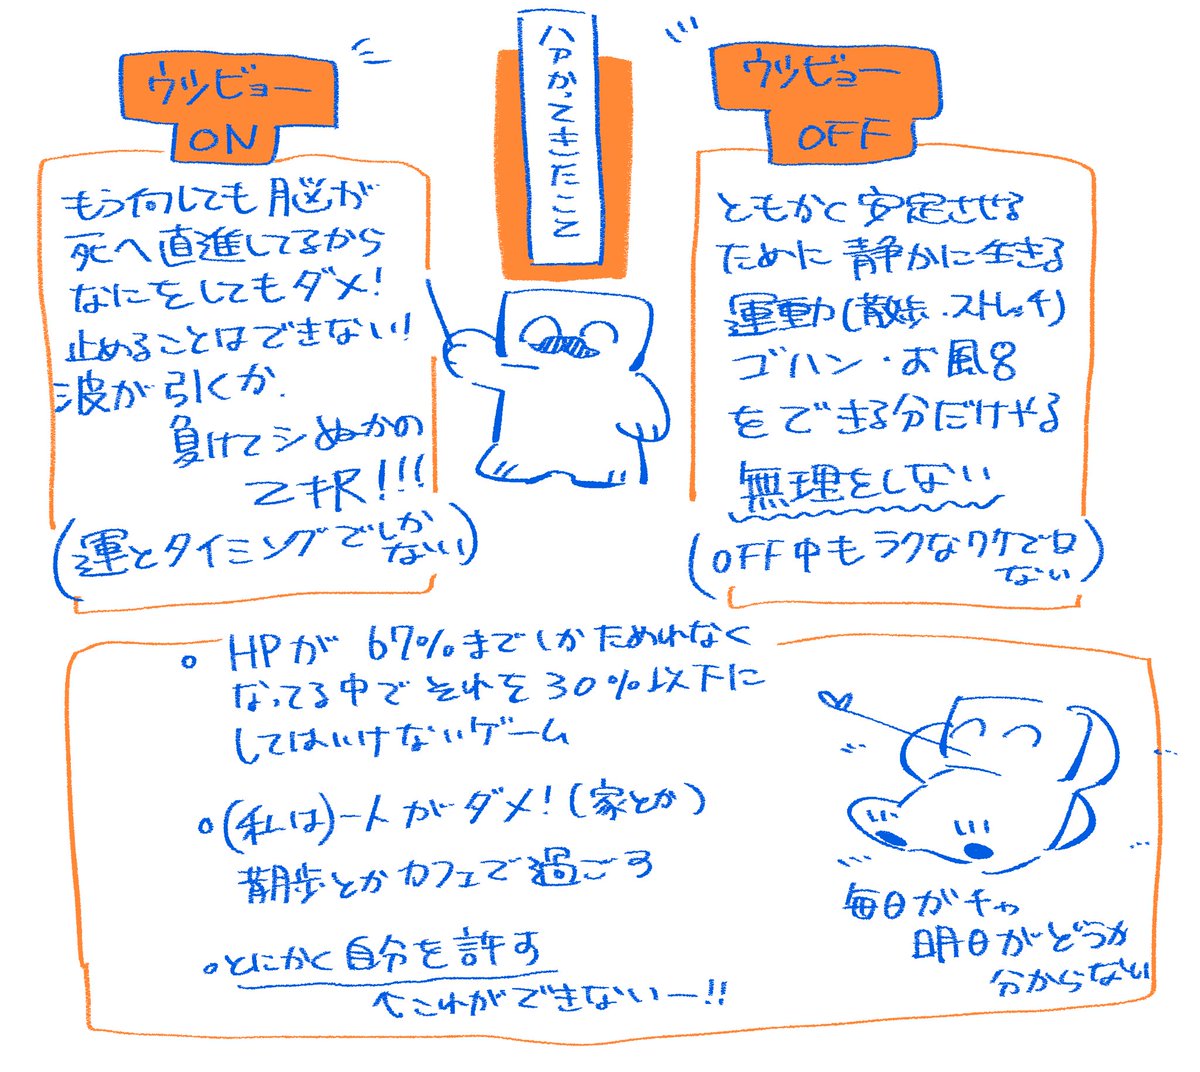 ハァかってきたこと
ウツビョー
ON
もう何しても脳が
死へ直進してるから
なにをしてもダメ!
止めることはできない!
波が引くか.
負けてシぬかの
2択!!!
(運とタイミングでしか
ない)
ウツビョー
OFF
ともかく安定させる
ために静かに生きる
運動(散歩・ストレッチ)
ゴハン・お風呂
をできる分だけやる
無理をしない
(OFF中もラクなワケでは
ない)
○HPが67%までしかためれなく
なってる中でそれを30%以下に
してはいけないゲーム
○(私は)一人がダメ!(家とか)
散歩とかカフェで過ごす
○とにかく自分を許す
↑これができないー!!
毎日ガチャ
明日がどうか
分からない